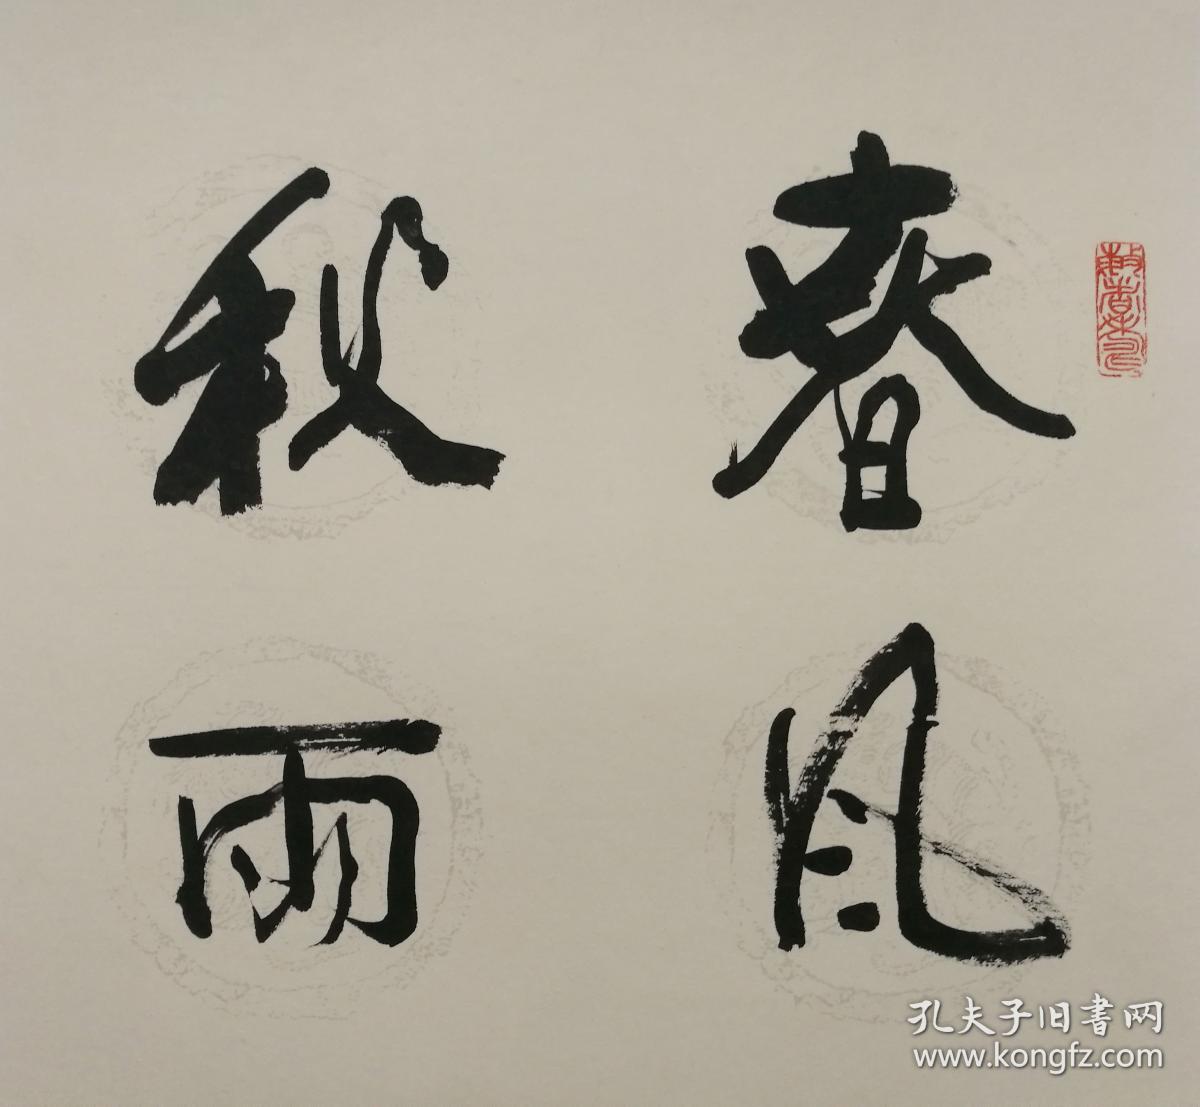 春风
秋雨
孔夫子旧书网
www.kongfz.com